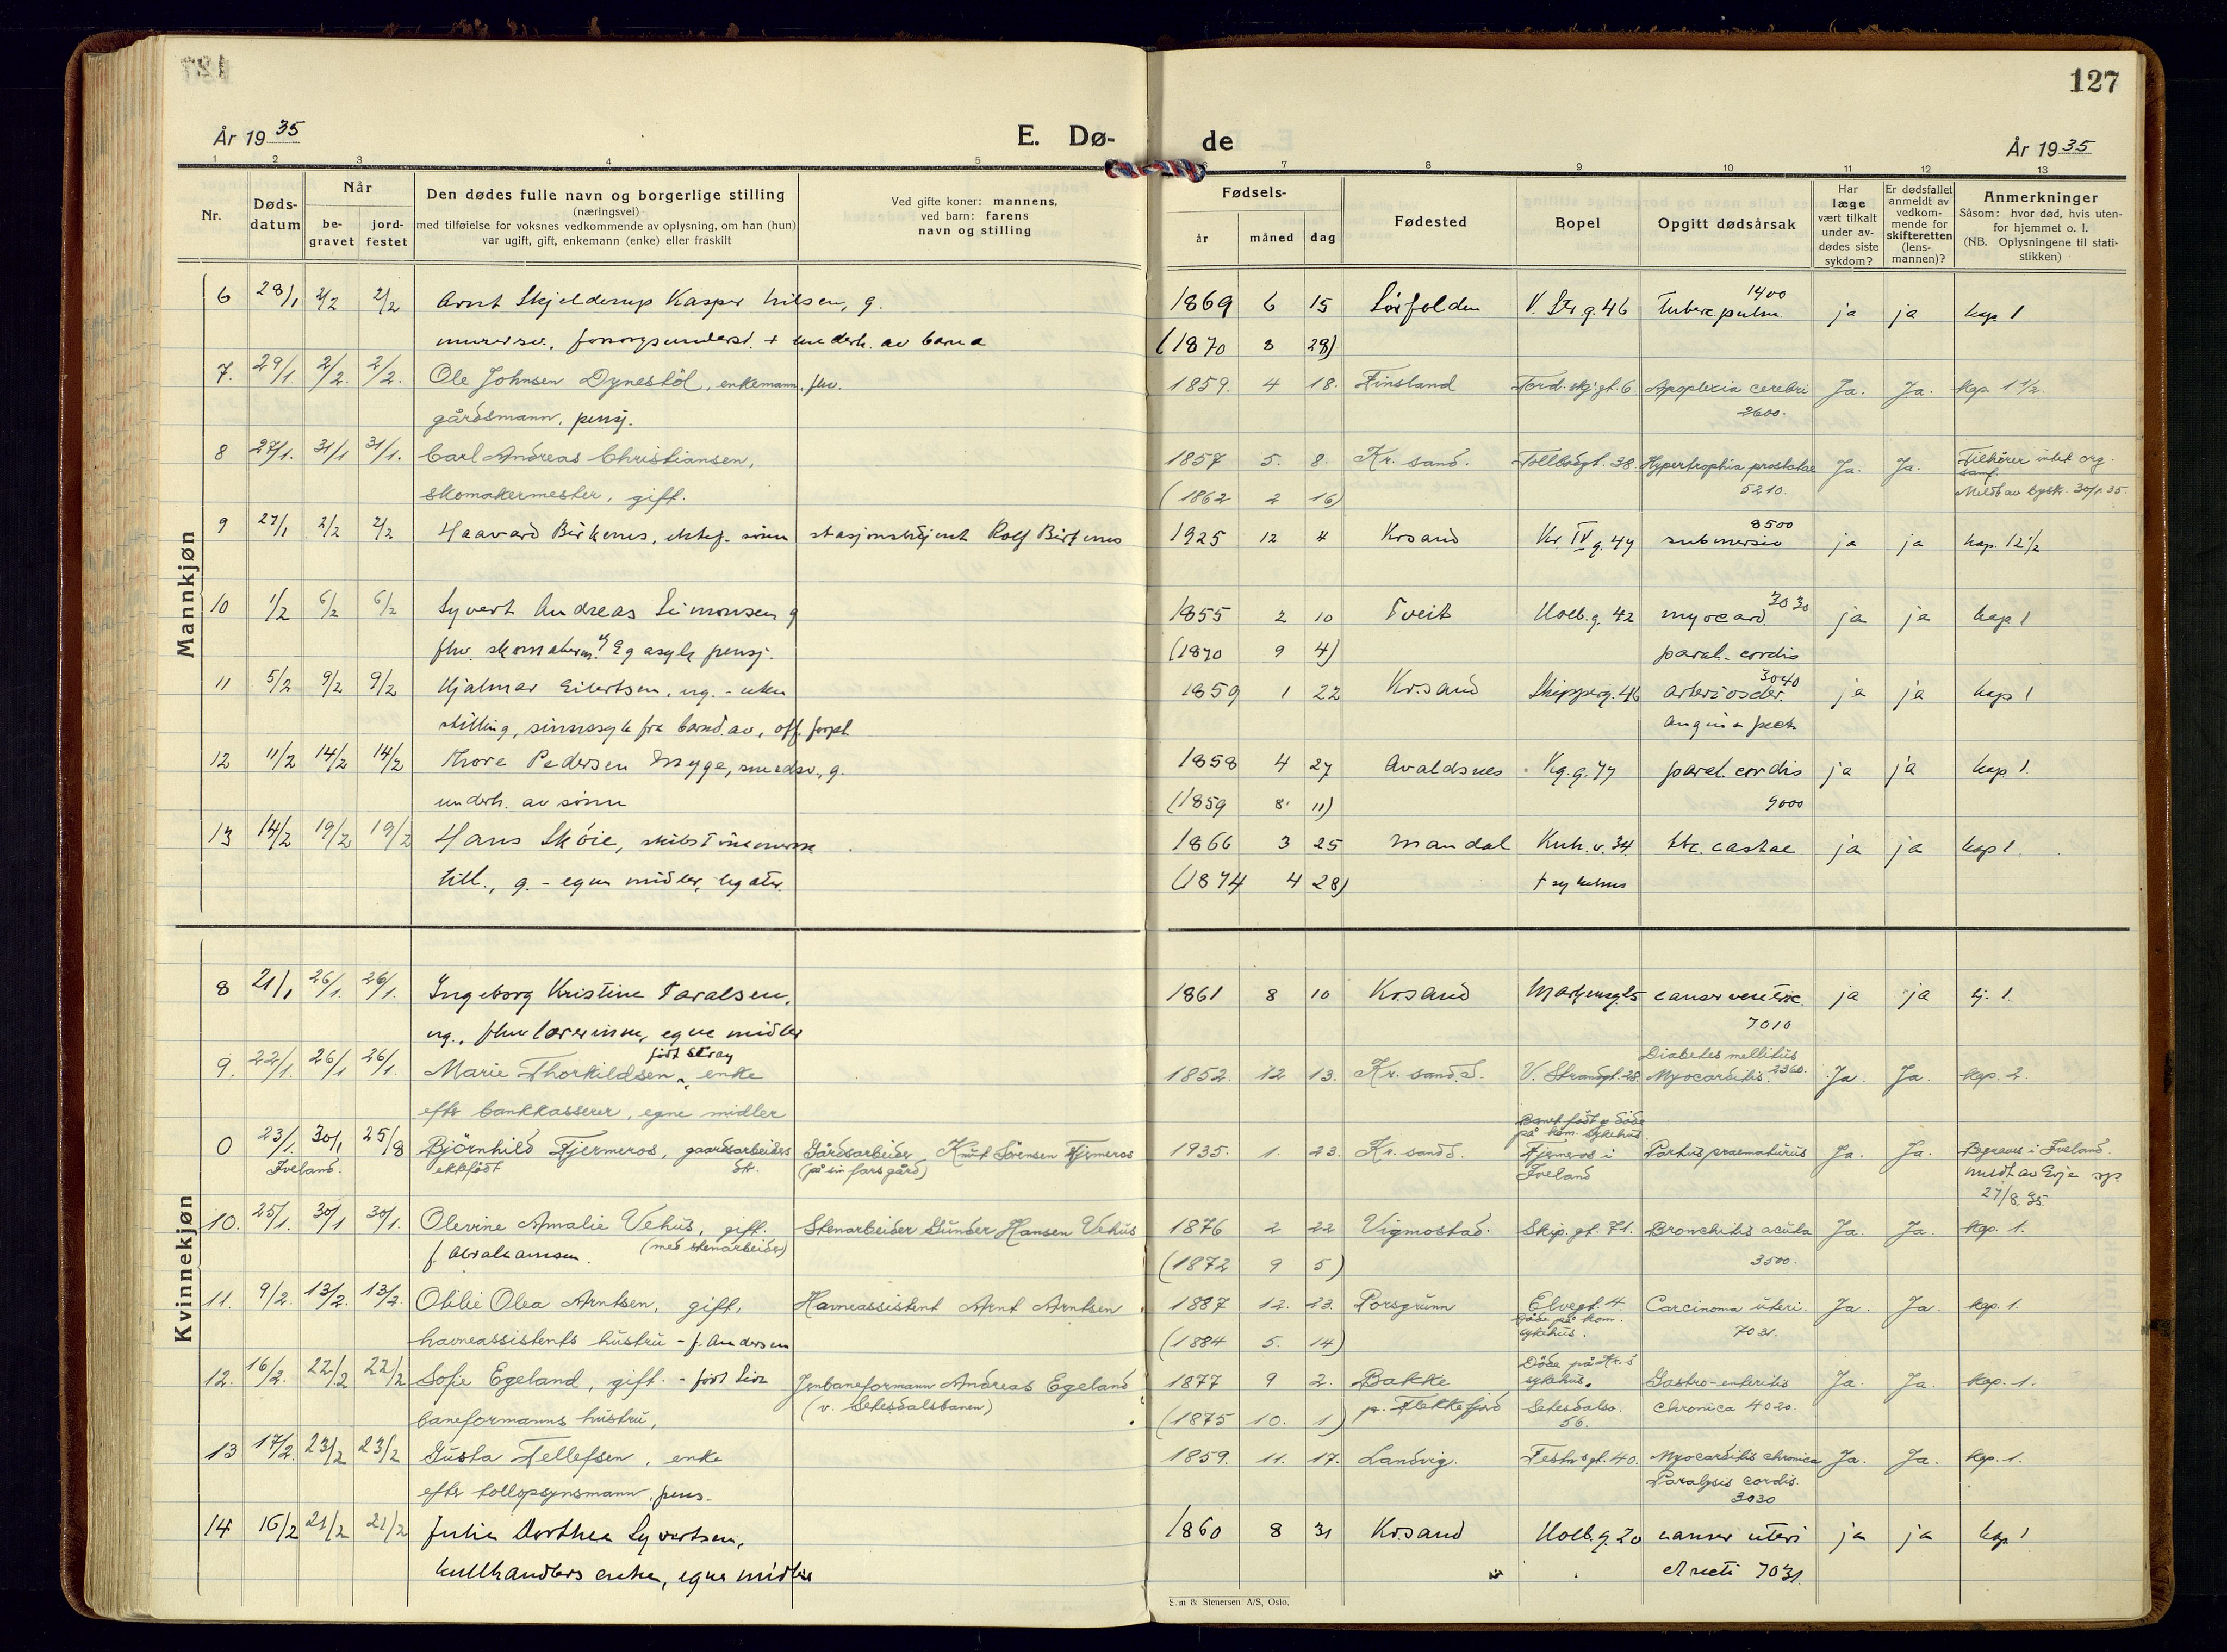 127
År 1935
E. Dø-
de
År 1935
1 2 3 4 5 6 7 8 9 10 11 12 13
Nr.
Døds-
datum
Når
be-
gravet
jord-
festet
Den dødes fulle navn og borgerlige stilling
(næringsvei)
med tilføielse for voksnes vedkommende av oplysning, om han (hun)
var ugift, gift, enkemann (enke) eller fraskilt
Ved gifte koner: mannens,
ved barn: farens
navn og stilling
Fødsels-
år måned dag
Fødested
Bopel
Opgitt dødsårsak
Har
læge
vært tilkalt
under av-
dødes siste
sykdom?
Er dødsfallet
anmeldt av
vedkom-
mende for
skifteretten
(lens-
mannen)?
Anmerkninger
Såsom: hvor død, hvis uten-
for hjemmet o. l.
(NB. Oplysningene til stati-
stikken)
Mannkjøn
6 28/1 2/2 2/2 Arnt Skjelderup Kasper Nilsen, g. 1869 6 15 Sørfolden V. Str g. 46 Tuberc pulm. 1400 ja ja kap 1
murersv. forsorgsunderst. + underh. av barna (1870 8 28)
7. 29/1. 2/2. 2/2. Ole Johnsen Dynestöl, enkemann, fhv. 1859. 4 18. Finsland Tord.skj.gt. 6 Apoplexia cerebri Ja. Ja. kap 1 1/2.
gårdsmann, pensj. 2600.
8 27/1. 31/1 31/1. Carl Andreas Christiansen, 1857 5. 8. Kr. sand. Tollbodgt. 38 Hypertrophia prostatae Ja. Ja. Tilhører intet org. samf.
skomakermester, gift. (1862 2 16) 5210. Meldt av bysk. 30/1 35.
9 27/1 2/2 2/2 Haavard Birkenes, ektef. sönn stasjonsbetjent Rolf Birkenes 1925 12 4 Krsand Kr IV g. 47 submersio 8500 ja ja kap. 12 1/2
10 1/2 6/2 6/2 Syvert Andreas Simonsen g 1855 2 10 Tveit Holb.g. 42 myocard. 3030 ja ja kap 1
fhv. skomakerm. Eg asyl, pensj. (1870 9 4) paral. cordis
11 5/2 9/2 9/2 Hjalmar Eilertsen, ug. - uten 1859 1 22 Kr.sand Skipperg. 46 arterioscler. 3040 ja ja kap 1
stilling, sinnssyk fra barnd. av, off. forpl. angina pect
12 11/2 14/2 14/2 Thore Pedersen Mygge, smedsv, g. 1858 4 27 Avaldsnes Kg.g. 77 paral. cordis ja ja kap 1.
underh. av sönn (1859 8 11) 9000
13 14/2 19/2 19/2 Hans Sköie, skibstömmerm 1866 3 25 Mandal Kuh. v. 34. ja ja kap 1
till., g. - egne midler, legater. (1874 4 28) † sykehus
Kvinnekjøn
8 21/1 26/1. 26/1. Ingeborg Kristine Taralsen, 1861 8 10 Krsand cancer ventric. ja ja lj. 1.
ug., fhv lærerinne, egne midler 7010
født Stray
9. 22/1. 26/1 26/1. Marie Thorkildsen, enke 1852. 12 13. Kr. sand.S. V. Strandgt. 28. Diabetes mellitus Myocarditis. 2360. Ja. Ja. kap. 2
efts bankkasserer, egne midler
0 23/1. 30/1 25/8 Björnhild Fjermeros, gaardsarbeiders Gårdsarbeider Knut Sörensen Fjermeros 1935. 1. 23. Kr. sand S. Barnet födt o döde på kom. sykehus. Fjermeros i Iveland Partus praematurus Ja. Ja. Begraves i Iveland.
Iveland. ektfødt dt. (på sin fars gård) medt av Evje sp. 27/8.35.
10. 25/1. 30/1 30/1. Olevine Amalie Vehus, gift. Stenarbeider Gunder Hansen Vehus 1876 2 22 Vigmostad. Skip. gt. 71. Bronchitis acuta Ja. Ja. kap. 1.
f. Abrahamsen. (med stenarbeider) (1872 9 5) 3500.
11. 9/2. 13/2. 13/2. Otilie Olea Arntsen, gift, Havneassistent Arnt Arntsen 1887 12. 23. Porsgrunn Elvegt. 4. Döde på kom. sykehus. Carcinoma uteri. Ja. Ja. kap. 1.
havneassistents hustru - f. Andersen (1884 5. 14) 7031.
12. 16/2. 22/2 22/2 Sofie Egeland, gift. - født Jernbaneformann Andreas Egeland 1877 9 2. Bakke Döde på Kr. S sykehus. Gastro-enteritis Ja. Ja. kap. 1.
baneformanns hustru, (v. Setesdalsbanen) (1875 10. 1) p. Flekkefjord Setesdalsv. 56. chronica 4020.
13 17/2. 23/2 23/2 Gusta Tellefsen, enke 1859. 11. 17. Landvig. Festn.gt. 40. Myocarditis chronica Ja. Ja. kap. 1.
efts tollopsynsmann, pens. Paralysis cordis. 3030
14 16/2 21/2 21/2 Julie Dorthea Syvertsen, 1860 8 31 Kr.sand Holb. g. 20 cancer uteri ja ja kap 1
kullhandlers enke, egne midler et recti 7031.
S.m & Stenersen A/S, Oslo.